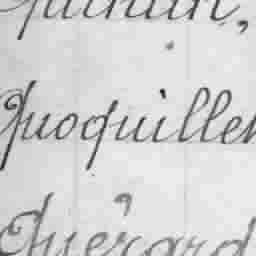 Quoquillet
Quérard